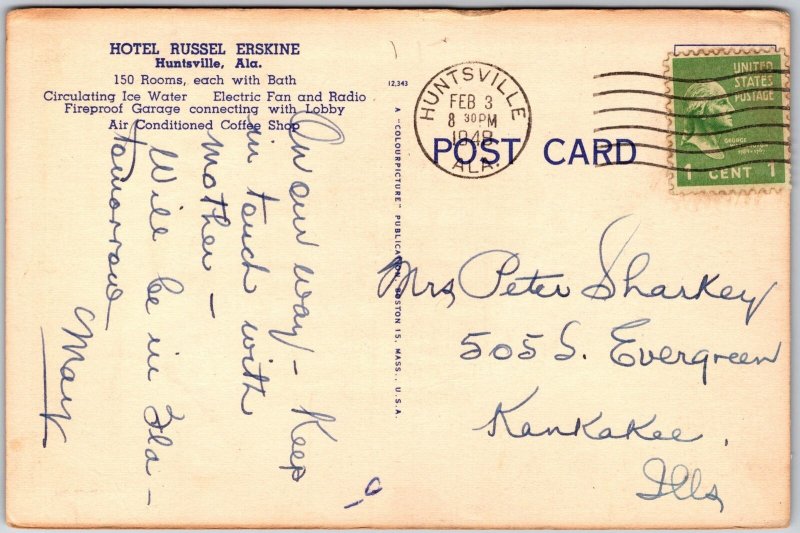 HOTEL RUSSEL ERSKINE
Huntsville, Ala.
150 Rooms, each with Bath
Circulating Ice Water Electric Fan and Radio
Fireproof Garage connecting with Lobby
Air Conditioned Coffee Shop
On our way - Keep
in touch with
Mother -
Will be in Fla -
tomorrow
Mary
12,343
A "COLOURPICTURE" PUBLICATION, BOSTON 15, MASS., U.S.A.
HUNTSVILLE
FEB 3
8 30 PM
ALA.
POST CARD
UNITED
STATES
POSTAGE
GEORGE
1 CENT 1
Mrs, Peter Sharkey
505 S. Evergreen
Kankakee.
Ills